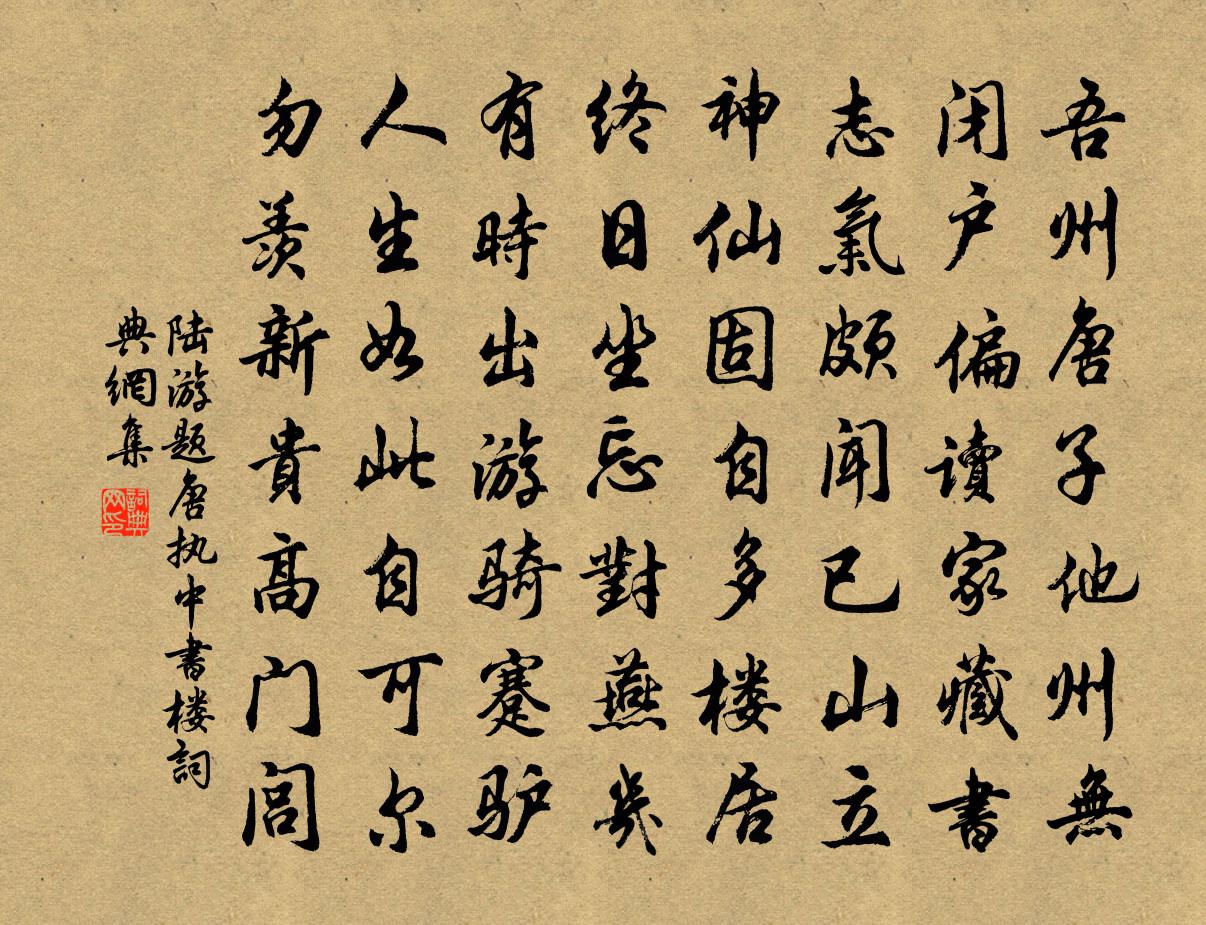 吾州唐子他州無
闭户偏讀家藏書
志氣頗闻已山立
神仙固自多楼居
终日坐忘對燕幾
有時出游骑蹇驴
人生如此自可尔
勿羡新貴高门闾
陆游题唐执中書楼詞
典網集
詞典
网印